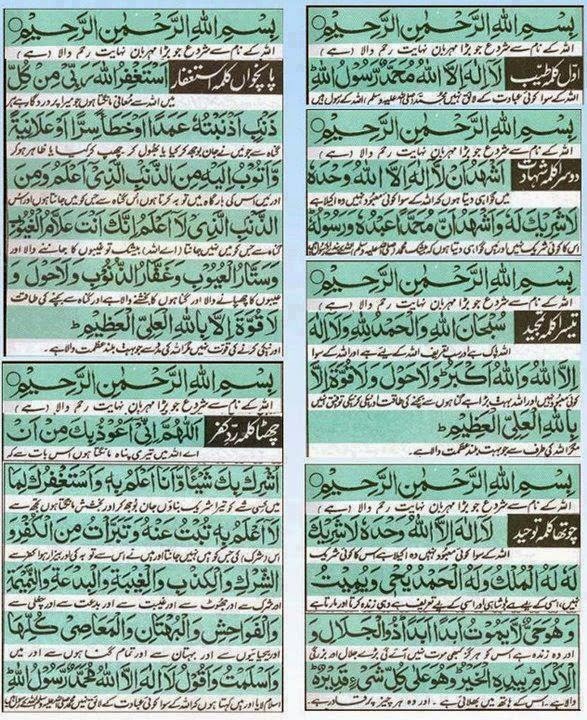 بِسْمِ اللهِ الرَّحْمٰنِ الرَّحِيْمِ
اللہ کے نام سے شروع جو بڑا مہربان نہایت رحم والا (ہے)
اوّل کلمہ طیّب لَا اِلٰهَ اِلَّا اللهُ مُحَمَّدٌ رَّسُوْلُ اللهِ
اللہ کے سوا کوئی عبادت کے لائق نہیں محمد صلی اللہ علیہ وسلم، اللہ کے رسول ہیں
بِسْمِ اللهِ الرَّحْمٰنِ الرَّحِيْمِ
اللہ کے نام سے شروع جو بڑا مہربان نہایت رحم والا (ہے)
دوسرا کلمہ شہادت اَشْهَدُ اَنْ لَّا اِلٰهَ اِلَّا اللهُ وَحْدَهٗ
میں گواہی دیتا ہوں کہ اللہ کے سوا کوئی معبود نہیں وہ اکیلا ہے
لَا شَرِيْكَ لَهٗ وَاَشْهَدُ اَنَّ مُحَمَّدًا عَبْدُهٗ وَرَسُوْلُهٗ
اس کا کوئی شریک نہیں اور میں گواہی دیتا ہوں کہ بیشک محمد صلی اللہ علیہ وسلم
بِسْمِ اللهِ الرَّحْمٰنِ الرَّحِيْمِ
اللہ کے نام سے شروع جو بڑا مہربان نہایت رحم والا (ہے)
تیسرا کلمہ تمجید سُبْحَانَ اللهِ وَالْحَمْدُ لِلّٰهِ وَلَا اِلٰهَ
اللہ پاک ہے اور سب تعریف اللہ کے لیے ہے اور اللہ کے سوا
اِلَّا اللهُ وَاللهُ اَكْبَرُ وَلَا حَوْلَ وَلَا قُوَّةَ اِلَّا
کوئی معبود نہیں اور اللہ بہت بڑا ہے
بِاللهِ الْعَلِيِّ الْعَظِيْمِ ط
مگر اللہ کی طرف سے جو بہت بلند عظمت والا ہے۔
بِسْمِ اللهِ الرَّحْمٰنِ الرَّحِيْمِ
اللہ کے نام سے شروع جو بڑا مہربان نہایت رحم والا (ہے)
چوتھا کلمہ توحید لَا اِلٰهَ اِلَّا اللهُ وَحْدَهٗ لَا شَرِيْكَ
اللہ کے سوا کوئی معبود نہیں وہ اکیلا ہے اس کا کوئی شریک
لَهٗ لَهُ الْمُلْكُ وَلَهُ الْحَمْدُ يُحْيٖ وَيُمِيْتُ
نہیں، اسی کے لیے ہے بادشاہی اور اسی کے لیے تعریف ہے وہی زندہ کرتا اور مارتا ہے
وَهُوَ حَيٌّ لَّا يَمُوْتُ اَبَدًا اَبَدًا ذُو الْجَلَالِ وَ
اور وہ زندہ ہے اس کو ہرگز کبھی موت نہیں آئے گی بڑے جلال اور
الْاِكْرَامِ بِيَدِهِ الْخَيْرُ وَهُوَ عَلٰى كُلِّ شَيْءٍ قَدِيْرٌ
بزرگی والا ہے۔ اس کے ہاتھ میں بھلائی ہے۔ اور وہ ہر چیز پر قادر ہے۔
بِسْمِ اللهِ الرَّحْمٰنِ الرَّحِيْمِ
اللہ کے نام سے شروع جو بڑا مہربان نہایت رحم والا (ہے)
پانچواں کلمہ استغفار اَسْتَغْفِرُ اللهَ رَبِّيْ مِنْ كُلِّ
میں اللہ سے معافی مانگتا ہوں جو میرا پروردگار ہے ہر
ذَنْبٍ اَذْنَبْتُهٗ عَمَدًا اَوْ خَطَأً سِرًّا اَوْ عَلَانِيَةً
گناہ سے جو میں نے جان بوجھ کر کیا یا بھول کر، چھپ کر کیا یا ظاہر ہو کر
وَّاَتُوْبُ اِلَيْهِ مِنَ الذَّنْبِ الَّذِيْ اَعْلَمُ وَمِنَ
اور میں اس کی بارگاہ میں توبہ کرتا ہوں اس گناہ سے جس کو میں جانتا ہوں اور اس
الذَّنْبِ الَّذِيْ لَا اَعْلَمُ اِنَّكَ اَنْتَ عَلَّامُ الْغُيُوْبِ
گناہ سے جس کو میں نہیں جانتا (اے اللہ) بیشک تو غیبوں کا جاننے والا اور
وَسَتَّارُ الْعُيُوْبِ وَغَفَّارُ الذُّنُوْبِ وَلَا حَوْلَ وَ
عیبوں کا چھپانے والا اور گناہوں کا بخشنے والا ہے اور گناہ سے بچنے کی طاقت
لَا قُوَّةَ اِلَّا بِاللهِ الْعَلِيِّ الْعَظِيْمِ ط
اور نیکی کرنے کی قوت نہیں مگر اللہ کی طرف سے جو بہت بلند عظمت والا ہے۔
بِسْمِ اللهِ الرَّحْمٰنِ الرَّحِيْمِ
اللہ کے نام سے شروع جو بڑا مہربان نہایت رحم والا (ہے)
چھٹا کلمہ ردِّ کفر اَللّٰهُمَّ اِنِّيْ اَعُوْذُ بِكَ مِنْ اَنْ
اے اللہ میں تیری پناہ مانگتا ہوں اس بات سے کہ
اُشْرِكَ بِكَ شَيْئًا وَّاَنَا اَعْلَمُ بِهٖ وَاَسْتَغْفِرُكَ لِمَا
میں کسی شے کو تیرا شریک بناؤں جان بوجھ کر اور بخشش مانگتا ہوں تجھ سے
لَا اَعْلَمُ بِهٖ تُبْتُ عَنْهُ وَتَبَرَّأْتُ مِنَ الْكُفْرِ وَ
اس (شرک) کی جس کو میں نہیں جانتا اور میں نے اس سے توبہ کی اور بیزار ہوا کفر سے
الشِّرْكِ وَالْكِذْبِ وَالْغِيْبَةِ وَالْبِدْعَةِ وَالنَّمِيْمَةِ
اور شرک سے اور جھوٹ سے اور غیبت سے اور بدعت سے اور چغلی سے
وَالْفَوَاحِشِ وَالْبُهْتَانِ وَالْمَعَاصِيْ كُلِّهَا
اور بیحیائیوں سے اور بہتان سے اور تمام گناہوں سے اور میں
وَاَسْلَمْتُ وَاَقُوْلُ لَا اِلٰهَ اِلَّا اللهُ مُحَمَّدٌ رَّسُوْلُ اللهِ
اسلام لایا اور میں کہتا ہوں کہ اللہ کے سوا کوئی عبادت کے لائق نہیں